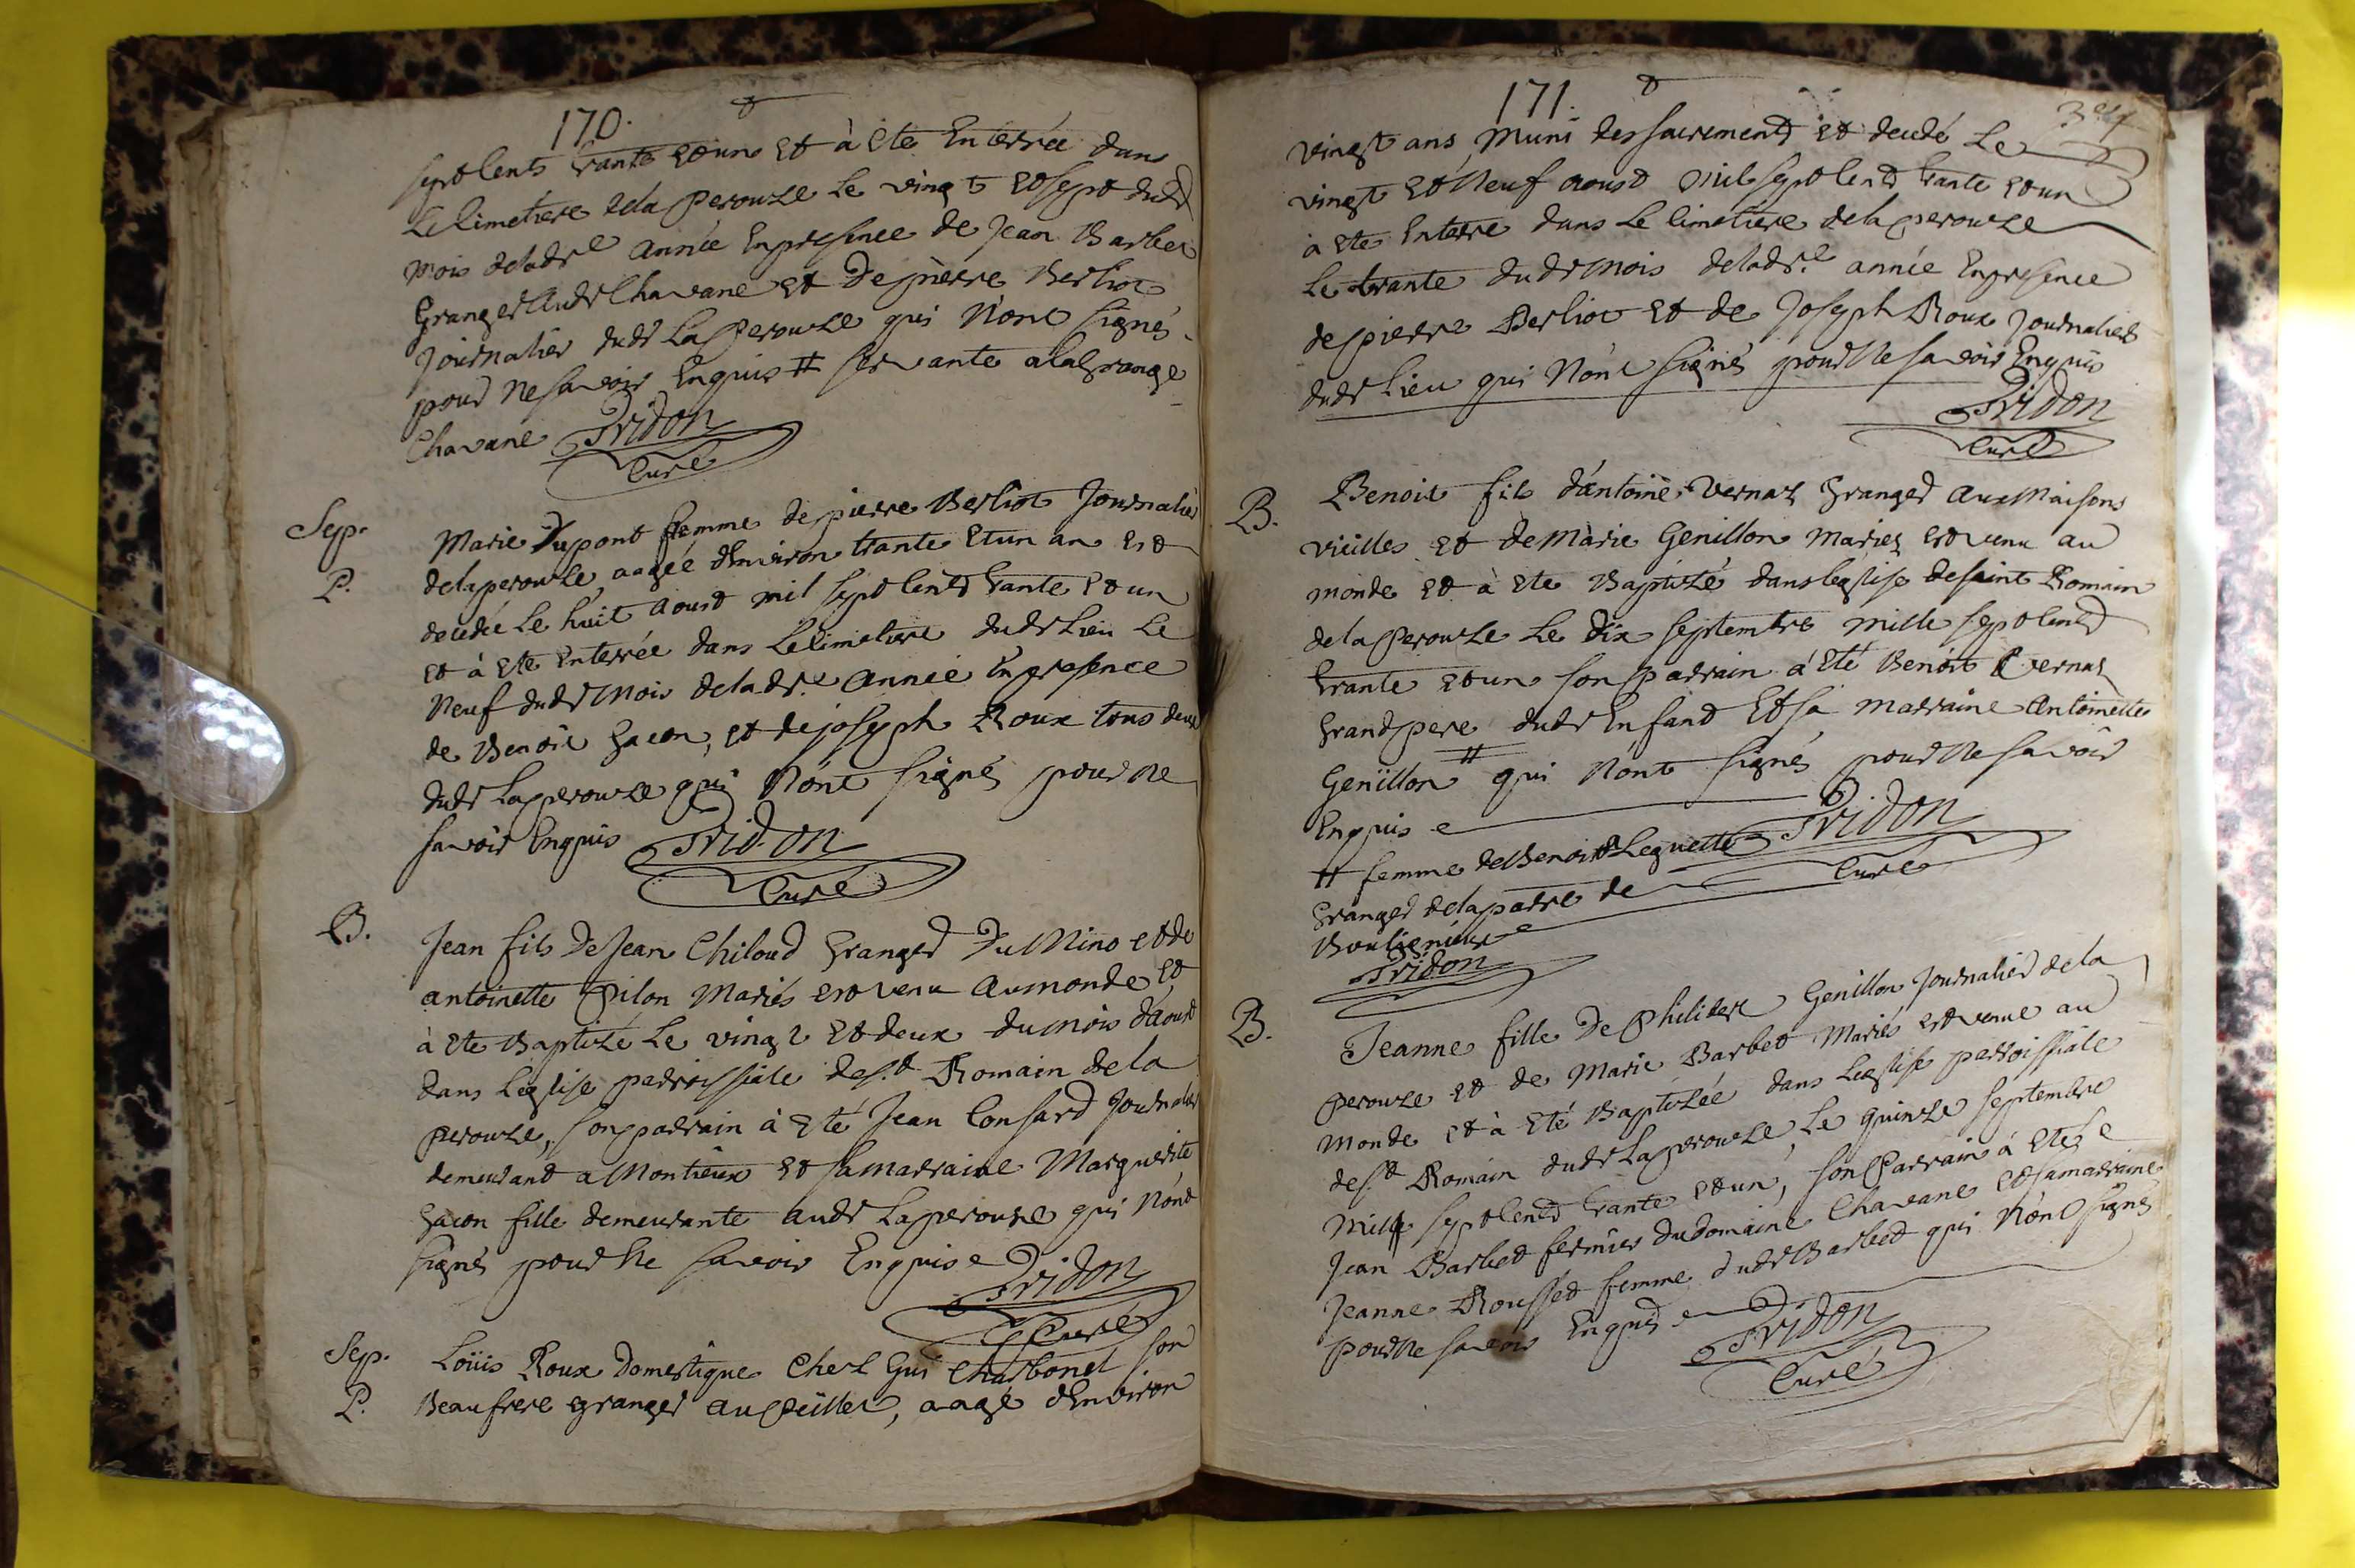 170.
sept cents trante et un et à eté enterrée dans
le cimetiere de la perouze le vingt et sept dudt
mois de ladte année en presence de Jean Barbet
granger dudt Chavane et de pierre Berliot
journalier dudt la perouze qui n'ont signés
pour ne savoir enquis # servante a la grange
Chavane Tridon
Curé
Sep.
P.
Marie Dupont femme de pierre Berliot Journalier
de la perouze, aagée d'environ trante et un an est
decedée le huit aoust mil sept cents trante et un
et à eté enterrée dans le cimetiere dudt lieu le
neuf dudt mois de ladte année en presence
de Benoit gacon, et de joseph Roux tous deux
dudt laperouze qui n'ont signés pour ne
savoir enquis Tridon
Curé
B.
Jean fils de Jean Chiloud granger du Mino et de
antoinette pilon mariés est venu au monde et
à eté Baptizé le vingt et deux du mois d'aoust
dans l'eglise parroissiale de st Romain de la
perouze, son parrain à eté Jean Consard journalier
demeurant a Montieux et sa marraine Marguerite
gacon fille demeurante audt laperouze qui n'ont
signés pour ne savoir enquis Tridon
Curé
Sep.
P.
Loüis Roux domestique chez gui Charbonet son
Beaufrere granger au peüillet, aagé d'environ
171.
vingt ans muni des sacrements et decedé le
vingt et neuf aoust mil sept cents trante et un
à eté enterré dans le cimetiere de la perouze
le trante dudt mois de ladte année en presence
de pierre Berliot et de joseph Roux journaliers
dudt lieu qui n'ont signés pour ne savoir enquis
Tridon
Curé
B.
Benoit fils d'antoine Vernaz granger aux Maisons
vieilles et de Marie Genillon mariez est venu au
monde et à eté Baptizé dans l'eglise de saint Romain
de la perouze le dix septembre mille sept cents
trante et un son parrain à eté Benoit vernaz
grandpere dudt enfand et sa marraine antoinette
Genillon # qui n'ont signés pour ne savoir
enquis Tridon
Curé
# femme de Benoit Leguette
granger de la padre de
Bouligneux
Tridon
B.
Jeanne fille de philibert Genillon journalier de la
perouze et de Marie Barbet mariés est venue au
monde et à eté Baptizée dans l'eglise parroissiale
de st Romain dudt laperouze, le quinze septembre
mille sept cents trante et un, son parrain à eté
Jean Barbet fermier du domaine Chavane et sa marraine
Jeanne Rousset femme dudt Barbet qui n'ont signés
pour ne savoir enquis Tridon
Curé